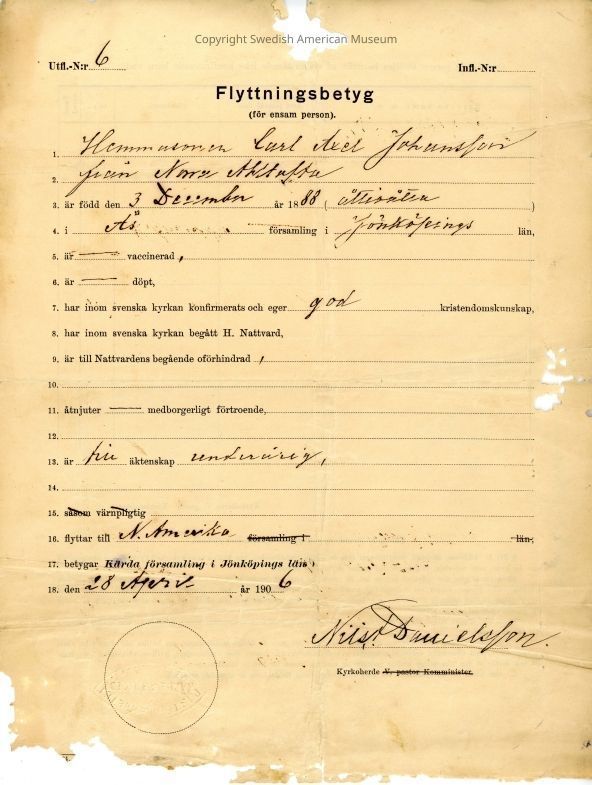 Copyright Swedish American Museum
Utfl.-N:r 6 Infl.-N:r
Flyttningsbetyg
(för ensam person).
1. Hemmasonen Carl Axel Johansson
2. från Norra
3. är född den 3 December år 1888 (åttiåtta)
4. i Ås församling i Jönköpings län,
5. är — vaccinerad,
6. är — döpt,
7. har inom svenska kyrkan konfirmerats och eger god kristendomskunskap,
8. har inom svenska kyrkan begått H. Nattvard,
9. är till Nattvardens begående oförhindrad,
10.
11. åtnjuter — medborgerligt förtroende,
12.
13. är till äktenskap underårig,
14.
15. såsom värnpligtig
16. flyttar till N. Amerika församling i län,
17. betygar Kärda församling i Jönköpings län
18. den 28 April år 1906
Nils Danielsson.
Kyrkoherde V. pastor Komminister.